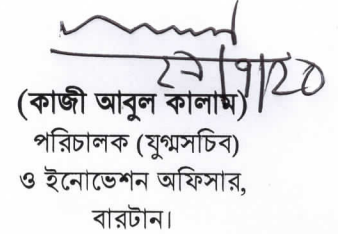 (কাজী আবুল কালাম)
পরিচালক (যুগ্মসচিব)
ও ইনোভেশন অফিসার,
বারটান।